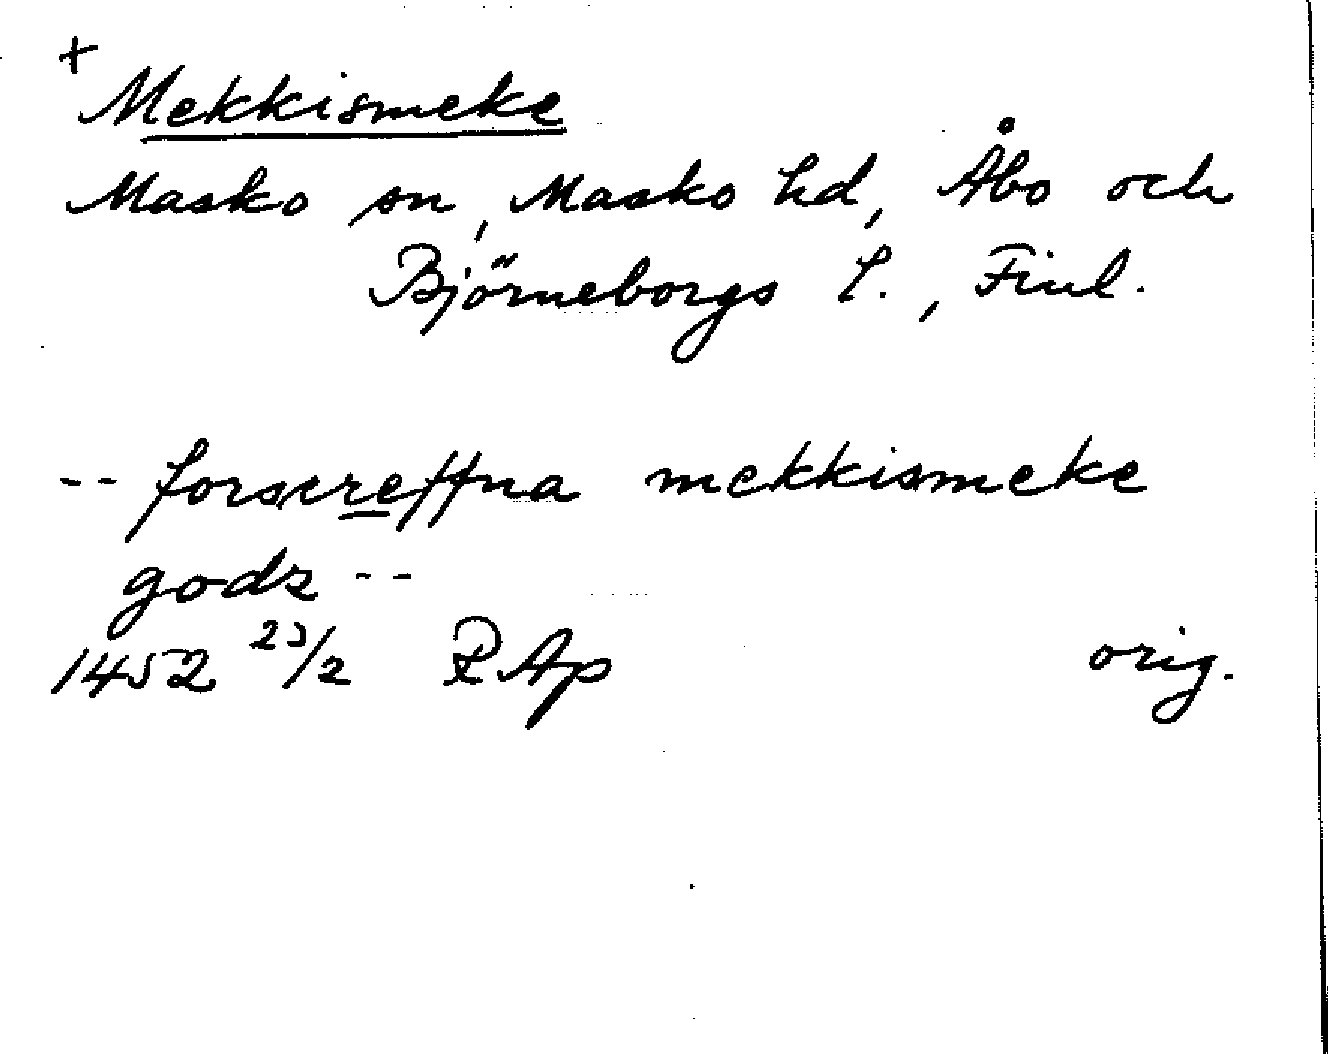 +
Mekkismeke
Masko sn, Masko hd, Åbo och
Björneborgs l., Finl.
-- forscreffna mekkismeke
godz --
1452 23/2 RAp orig.